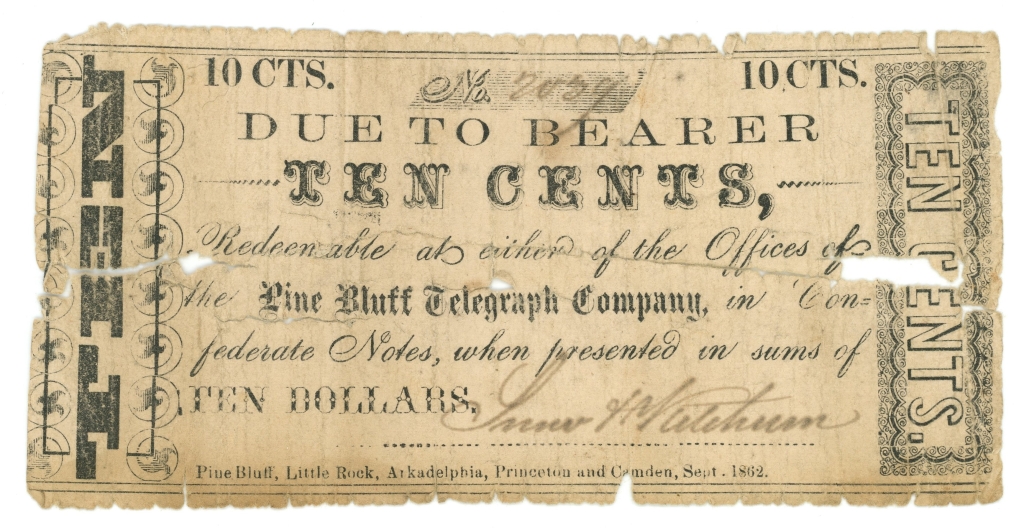 10 CTS. No. 7039 10 CTS.
DUE TO BEARER
TEN CENTS,
Redeemable at either of the Offices of
the Pine Bluff Telegraph Company, in Con=
federate Notes, when presented in sums of
TEN DOLLARS.
Snow & Ketchum
Pine Bluff, Little Rock, Arkadelphia, Princeton and Camden, Sept. 1862.
TEN
TEN CENTS.